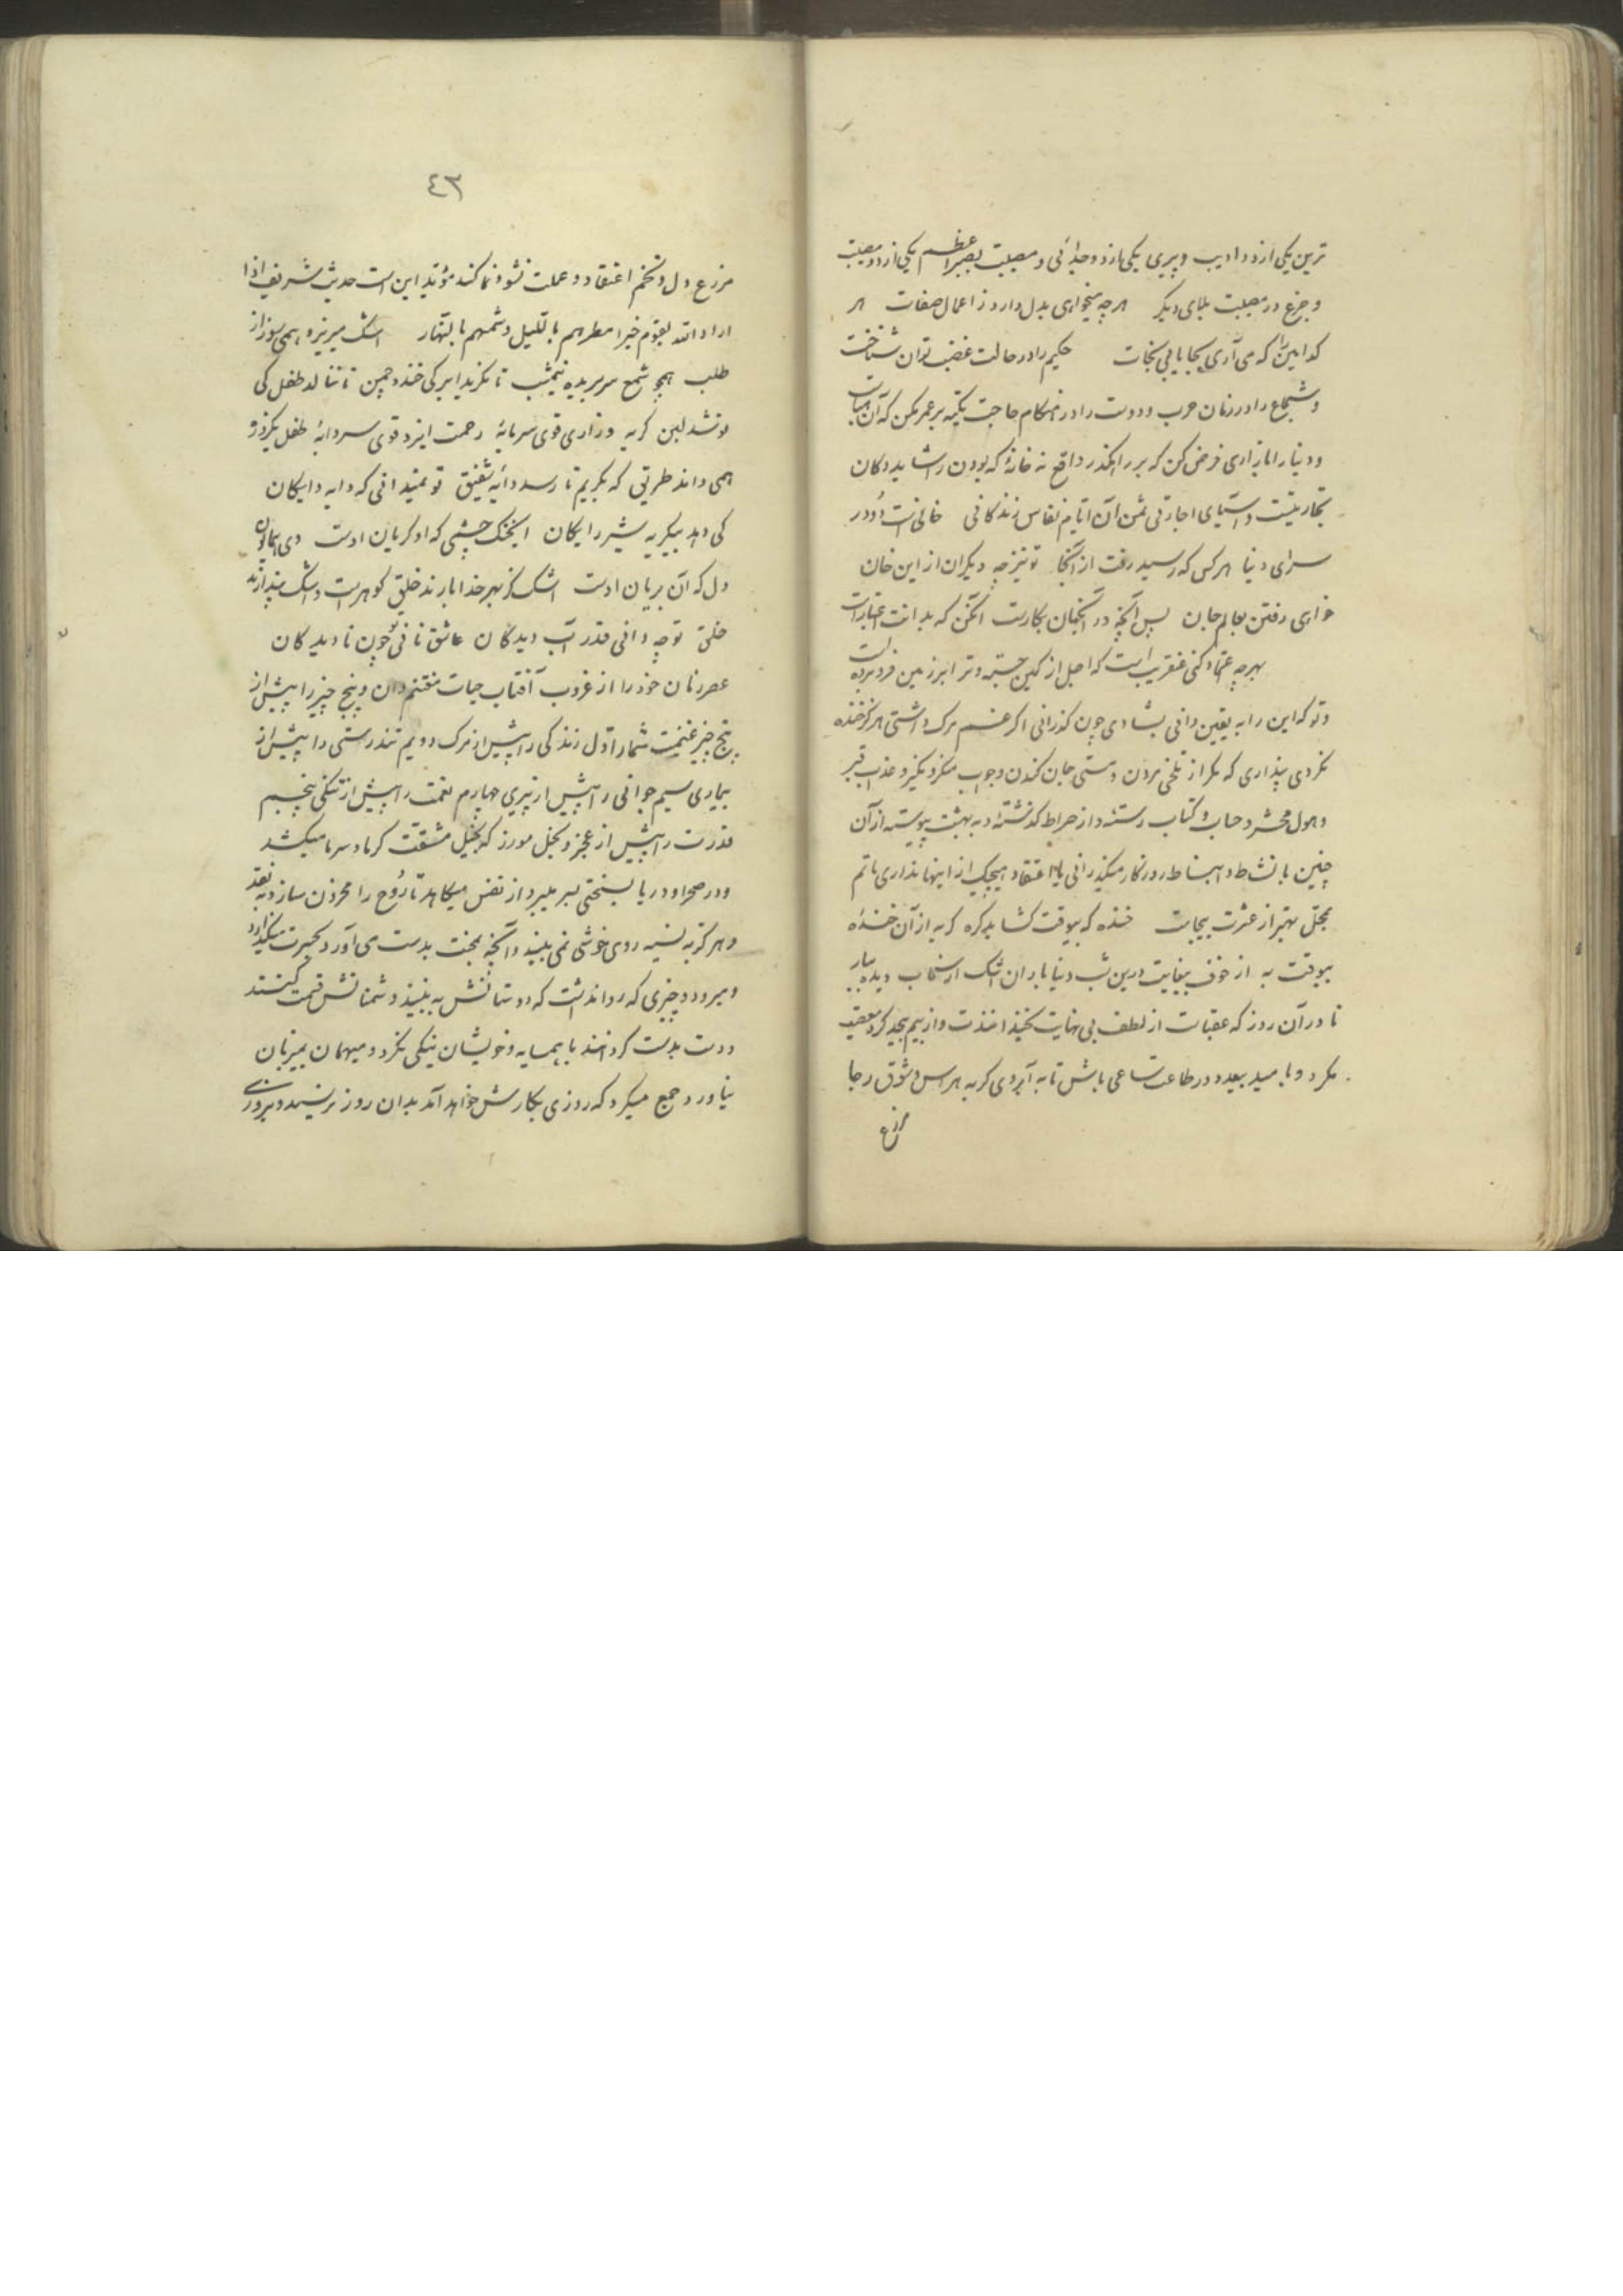 ترین یکی از دو ادیب و پیری یکی از دو جدائی و مصیبت بصبر اعظم یکی از دو مصیبت
و جزع در مصیبت بلای دیگر هر چه میخواهی بدل دارد ز اعمال صفات هر
کدامین را که می آری بجا یابی نجات حکیم را در حالت غضب توان شناخت
و شجاع را در زمان حرب و دوست را در هنگام حاجت تکیه بر عمر مکن که آن
و دنیا را بازاری فرض کن که بر رهگذر واقع نه خانهٔ که بودن را شاید دکان
تجارتیست و آسیای اجارتی ثمن آن ایام نفاس زندگانی خانی است دو در
سرای دنیا هر کس که رسید رفت از آنجا تو نیز چه دیگران از این خان
خواهی رفتن بعالم جان پس آنچه در آنجهان بکارت
بهر چه اعتماد کنی عنقریب است که اجل از کمین جسته و ترا بر زمین فرو برده
و تو که این را به یقین دانی بشادی چون گذرانی اگر غم مرگ داشتی هرگز خنده
نکردی پنداری که مگر از تلخی مردن و سستی جان کندن و جواب منکر و نکیر و عذاب قبر
و هول محشر و حساب و کتاب رسته و از صراط گذشته و به بهشت پیوسته از آن
چنین با نشاط و انبساط روزگار میگذرانی یا اعتقاد بهیچیک از اینها نداری ماتم
بمحل بهتر از عشرت بیجات خنده که بیوقت گشاید گره گریه از آن خنده
بیوقت به از خوف بیغایت درین شب دنیا باران اشک از سحاب دیده ببار
تا در آن روز که عقبات از لطف بی نهایت بخندانندت و از بیم بیحد گرد معصیت
مگرد و با امید بیعد در طاعت ساعی باش تا به آبروی گریه هراس و شوق رجا
مزرع
٤٣
مزرع دل و تخم اعتقاد و عملت نشو و نما کند مؤید این است حدیث شریف اذا
اراد الله بقوم خیرا مطرهم باللیل و شمسهم بالنهار اشک میریزه همی سوز از
طلب همچو شمع سر بریده نیمشب تا نگرید ابر کی خندد چمن تا ننالد طفل کی
نوشد لبن گریه و زاری قوی سرمایهٔ رحمت ایزد قوی سر دایهٔ طفل یکروزه
همی داند طریق که بگریم تا رسد دایه شفیق تو نمیدانی که دایه دایگان
کی دهد بیگریه شیر رایگان ایخنک چشمی که او گریان اوست وی همایون
دل که آن بریان اوست اشک کز بهر خدا بارند خلق گوهر است و اشک پندارند
خلق تو چه دانی قدر آب دیدگان عاشق نانی تو چون نادیدگان
عصر زمان خود را از غروب آفتاب حیات مغتنم دان و پنج چیز را پیش از
پنج چیز غنیمت شمار اول زندگی را پیش از مرگ دویم تندرستی را پیش از
بیماری سیم جوانی را پیش از پیری چهارم نعمت را پیش از تنگی پنجم
قدرت را پیش از عجز و بخل مورز که بخیل مشقت گرما و سرما میکشد
و در صحرا و دریا بسختی بسر میبرد از نفس میکاهد تا روح را محزون سازد به نقد
و هرگز به نسیه روی خوشی نمی بیند و آنچه بمحنت بدست می آورد بحسرت میگذارد
و میرود و چیزی که روا نداشت که دوستانش به بینند دشمنانش قسمت کنند
و دست بدست گردانند با همسایه و خویشان نیکی نکرد و میهمان بمیزبان
نیاورد و جمع میکرد که روزی بکارش خواهد آمد بدان روز نرسید و بروزی